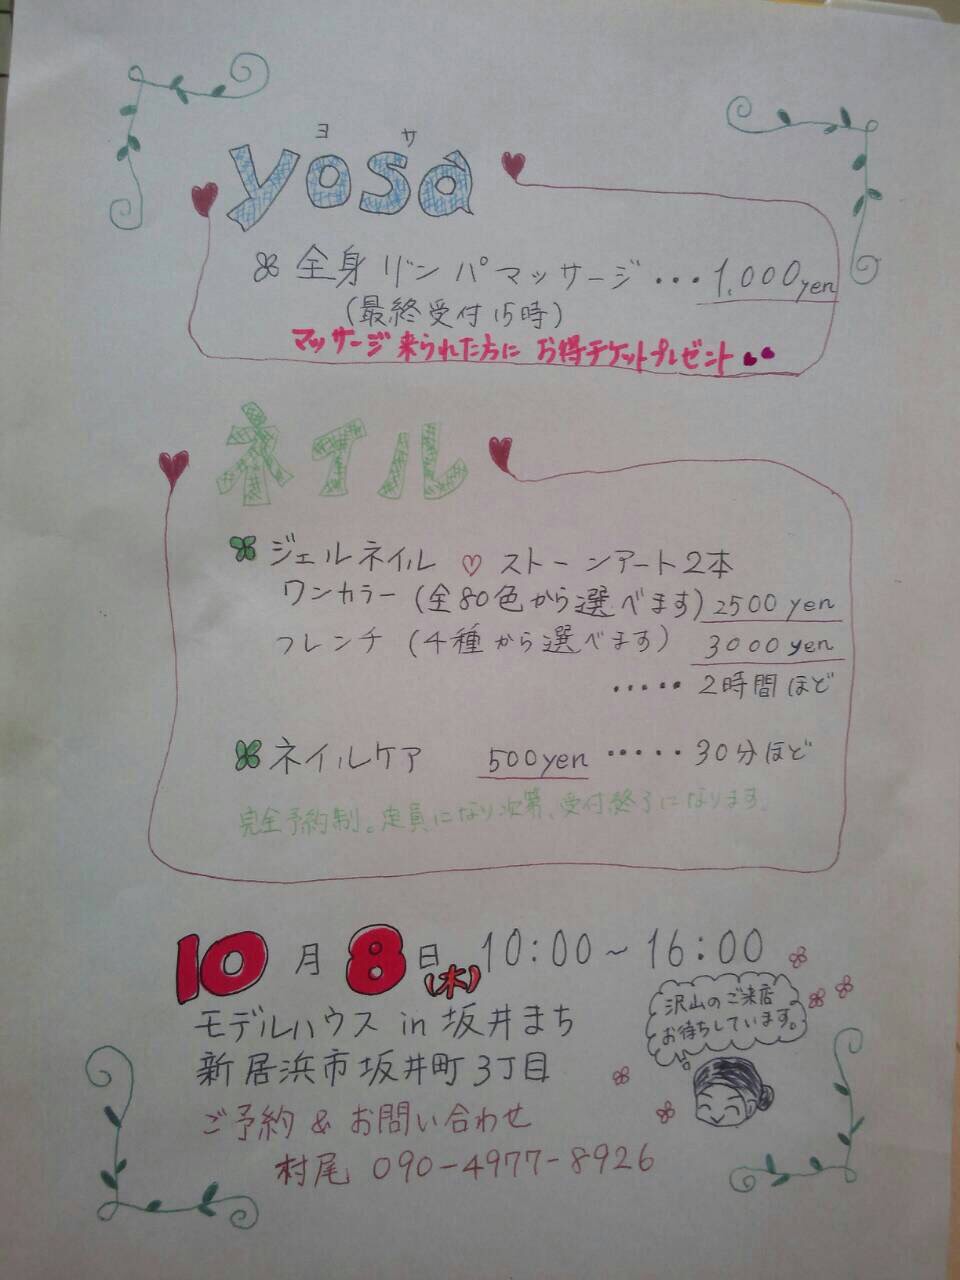 ヨサ
yosa
全身リンパマッサージ・・・1,000yen
(最終受付15時)
マッサージ来られた方に お得チケットプレゼント
ネイル
ジェルネイル ♡ ストーンアート2本
ワンカラー (全80色から選べます) 2500yen
フレンチ (4種から選べます) 3000yen
・・・・・ 2時間ほど
ネイルケア 500yen ・・・・・ 30分ほど
完全予約制。定員になり次第、受付終了になります。
10月8日(木) 10:00~16:00
モデルハウス in 坂井まち
新居浜市坂井町3丁目
沢山のご来店
お待ちしています。
ご予約 & お問い合わせ
村尾 090-4977-8926